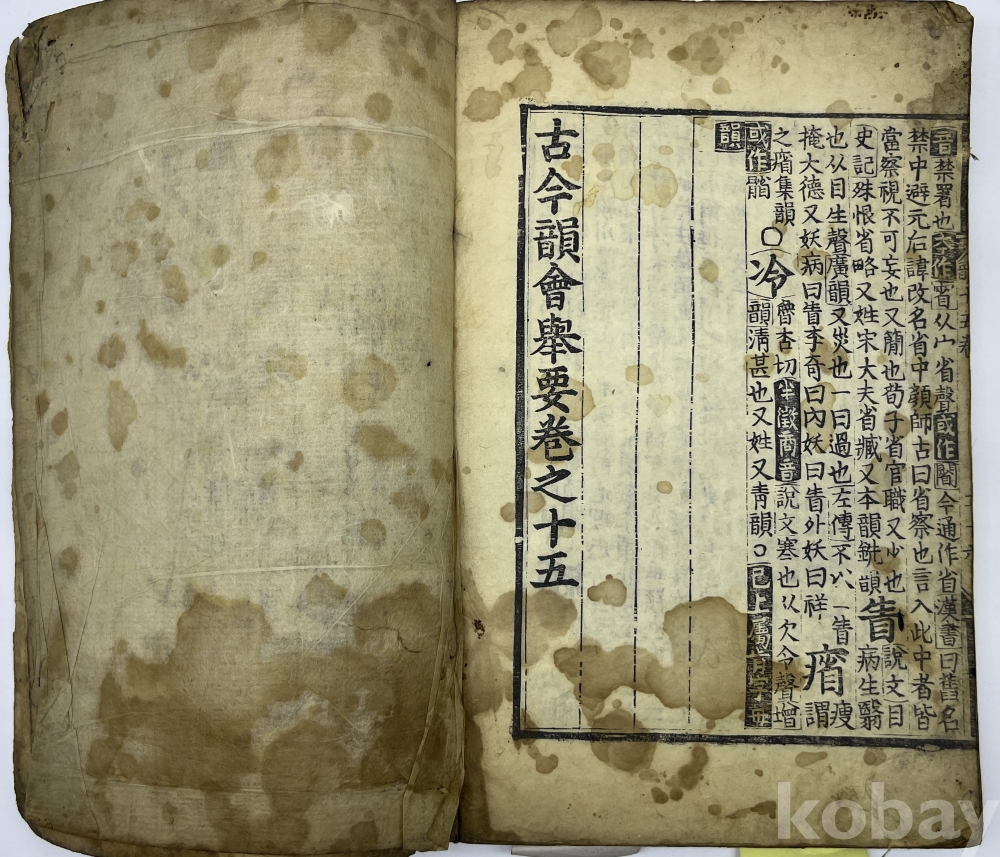 音禁署也 从宀省聲或作 今通作省漢書曰舊名
禁中避元后諱改名省中顔師古曰省察也言入此中者皆
當察視不可妄也又簡也荀子省官職又少也
史記殊恨省略又姓宋大夫省臧又本韻銑韻
眚
說文目
病生翳
也从目生聲廣韻又災也一曰過也左傳不以一眚
掩大德又妖病曰眚李奇曰內妖曰眚外妖曰祥
瘦
謂
之 集韻
或作
○冷
魯杏切半徵商音說文寒也从仌令聲增
韻清甚也又姓又靑韻○已上屬
韻
古今韻會舉要卷之十五
kobay